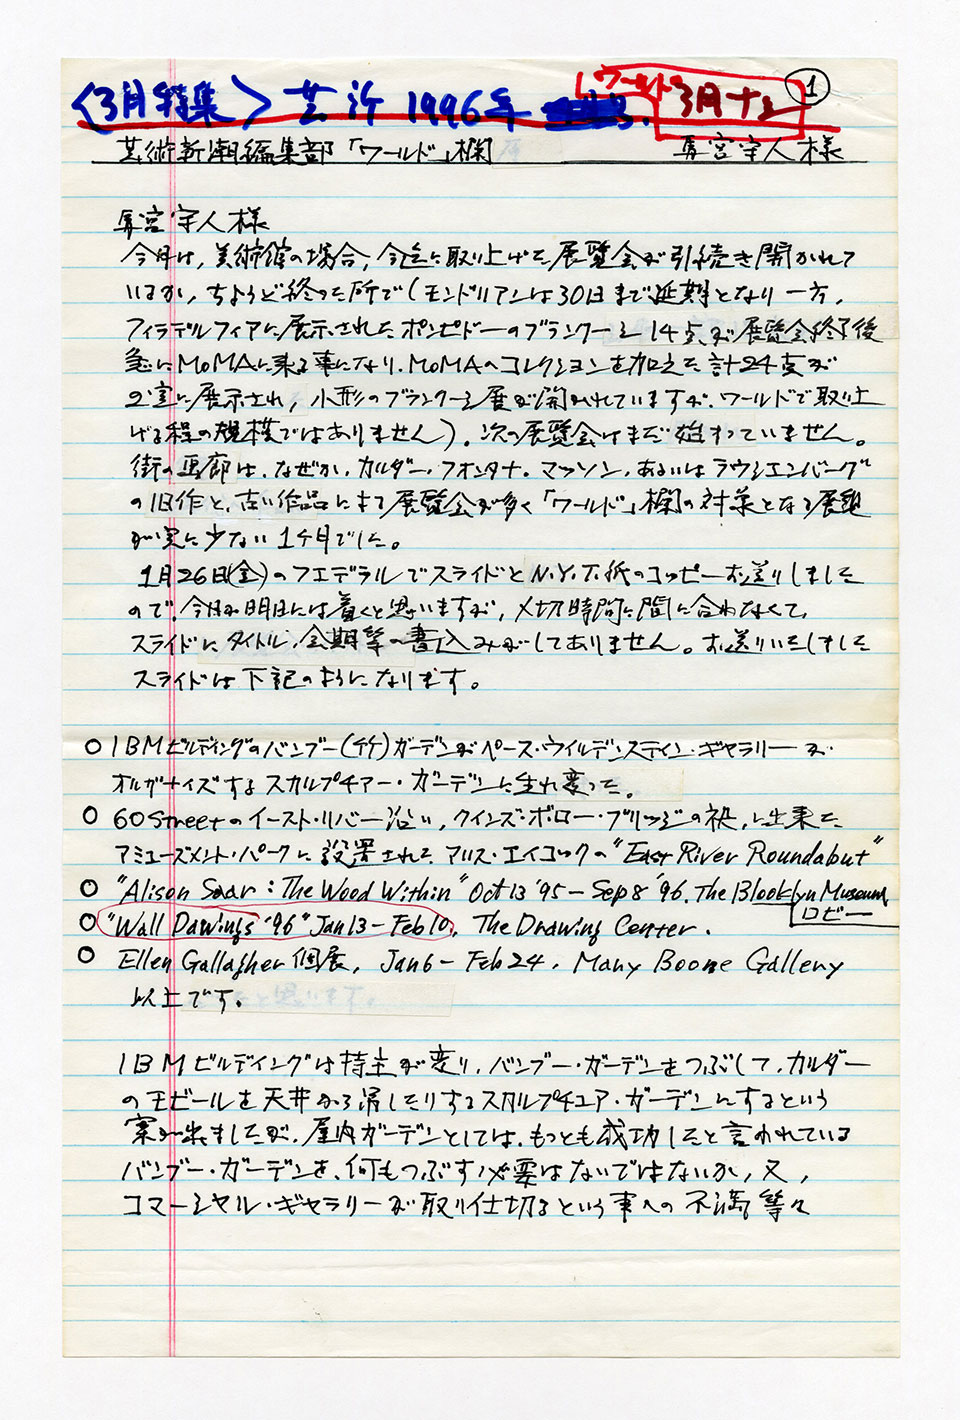 〈3月特集〉 芸術 1996年 3.
ワールド 3月 ①
芸術新潮編集部「ワールド」欄 宮守人様
宮守人様
今月は，美術館の場合，今迄に取り上げた展覧会が引続き開かれて
いるか，ちょうど終った所で（モンドリアンは30日まで延期となり一方，
フィラデルフィアに展示されたポンピドーのブランクーシ14点が展覧会終了後
急にMoMAに来る事になり，MoMAのコレクションを加えた計24点が
2室に展示され，小形のブランクーシ展が開かれていますが，ワールドで取り上
げる程の規模ではありません）。次の展覧会はまだ始まっていません。
街の画廊は，なぜか，カルダー，フォンタナ，マッソン，あるいはラウシェンバーグ
の旧作と，古い作品による展覧会が多く「ワールド」欄の対象となる展覧
が実に少ない1ヶ月でした。
1月26日(金)のフェデラルでスライドとN.Y.T.紙のコッピーお送りしました
ので，今日か明日には着くと思いますが，〆切時間に間に合わなくて，
スライドに，タイトル，会期等の書込みがしてありません。お送りいたしました
スライドは下記のようになります。
○ IBMビルディングのバンブー(竹)ガーデンがペース・ウイルデンステイン・ギャラリーが
オルガナイズするスカルプチァー・ガーデンに生れ変った。
○ 60Streetのイースト・リバー沿い，クインズ・ボロー・ブリッジの袂，に出来た
アミューズメント・パークに設置されたアリス・エイコックの"East River Roundabut"
○ "Alison Saar : The Wood Within" Oct 13 '95 – Sep 8 '96, The Blooklyn Museum,
ロビー
○ "Wall Dawings '96" Jan 13 – Feb 10, The Drawing Center.
○ Ellen Gallagher 個展, Jan 6 – Feb 24, Mary Boone Gallery
以上です。
IBMビルディングは持主が変り，バンブー・ガーデンをつぶして，カルダー
のモビールを天井から吊したりするスカルプチュア・ガーデンにするという
案が出ましたが，屋内ガーデンとしては，もっとも成功したと言われている
バンブー・ガーデンを，何もつぶす必要はないではないか，又，
コマーシャル・ギャラリーが取り仕切るという事への不満等々